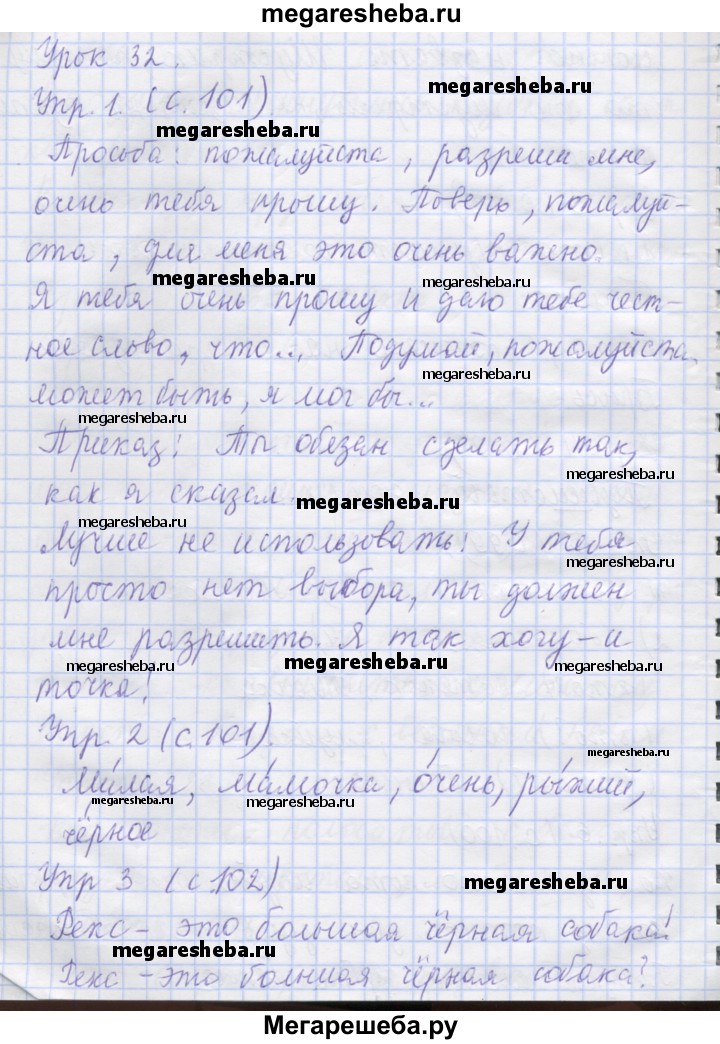 megaresheba.ru
Урок 32.
megaresheba.ru
Упр. 1. (с. 101)
megaresheba.ru
Просьба: пожалуйста, разреши мне,
очень тебя прошу. Поверь, пожалуй-
ста, для меня это очень важно.
megaresheba.ru megaresheba.ru
Я тебя очень прошу и даю тебе чест-
ное слово, что... Подумай, пожалуйста,
megaresheba.ru
может быть, я мог бы...
megaresheba.ru
Приказ: Ты обязан сделать так,
megaresheba.ru
как я сказал.
megaresheba.ru
megaresheba.ru
Лучше не использовать: У тебя
megaresheba.ru
просто нет выбора, ты должен
мне разрешить. Я так хочу - и
megaresheba.ru megaresheba.ru megaresheba.ru
точка!
Упр. 2 (с. 101).
megaresheba.ru
Ми́лая, ма́мочка, о́чень, ры́жий,
megaresheba.ru megaresheba.ru
чёрное
Упр 3 (с. 102)
megaresheba.ru
Рекс - это большая чёрная собака!
megaresheba.ru
Рекс - это болшая чёрная собака?
megaresheba.ru
Мегарешеба.ру